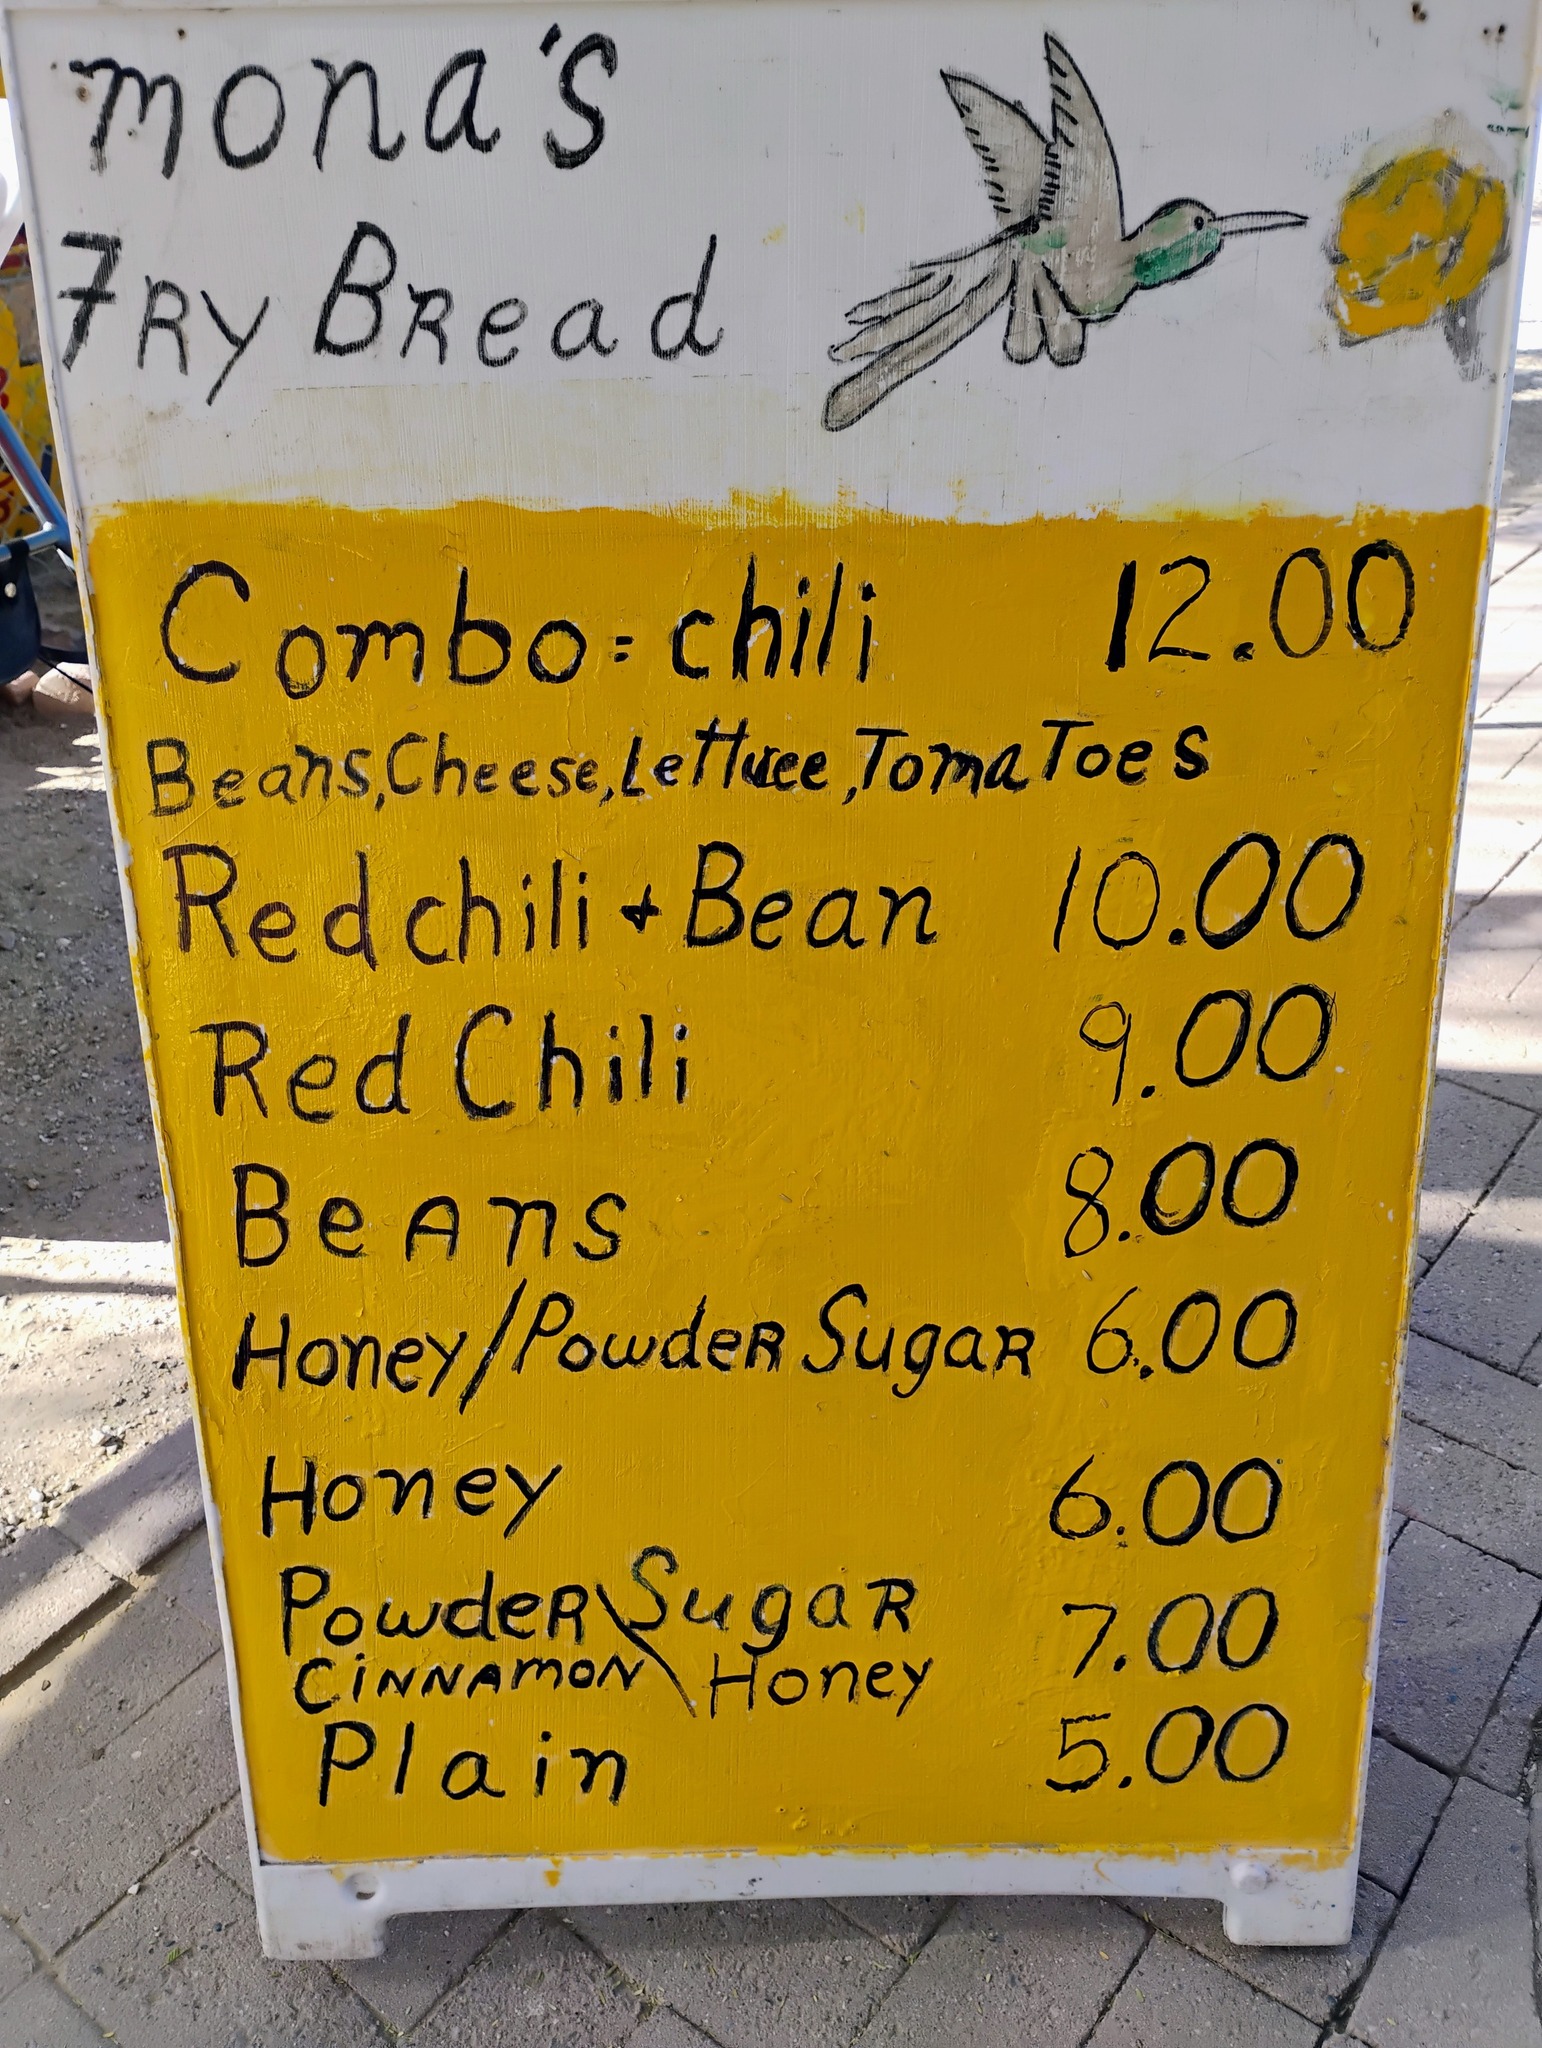 mona's
Fry Bread
Combo: chili 12.00
Beans, Cheese, Lettuce, Tomatoes
Red chili + Bean 10.00
Red Chili 9.00
Beans 8.00
Honey/Powder Sugar 6.00
Honey 6.00
Powder\Sugar 7.00
Cinnamon\Honey
Plain 5.00